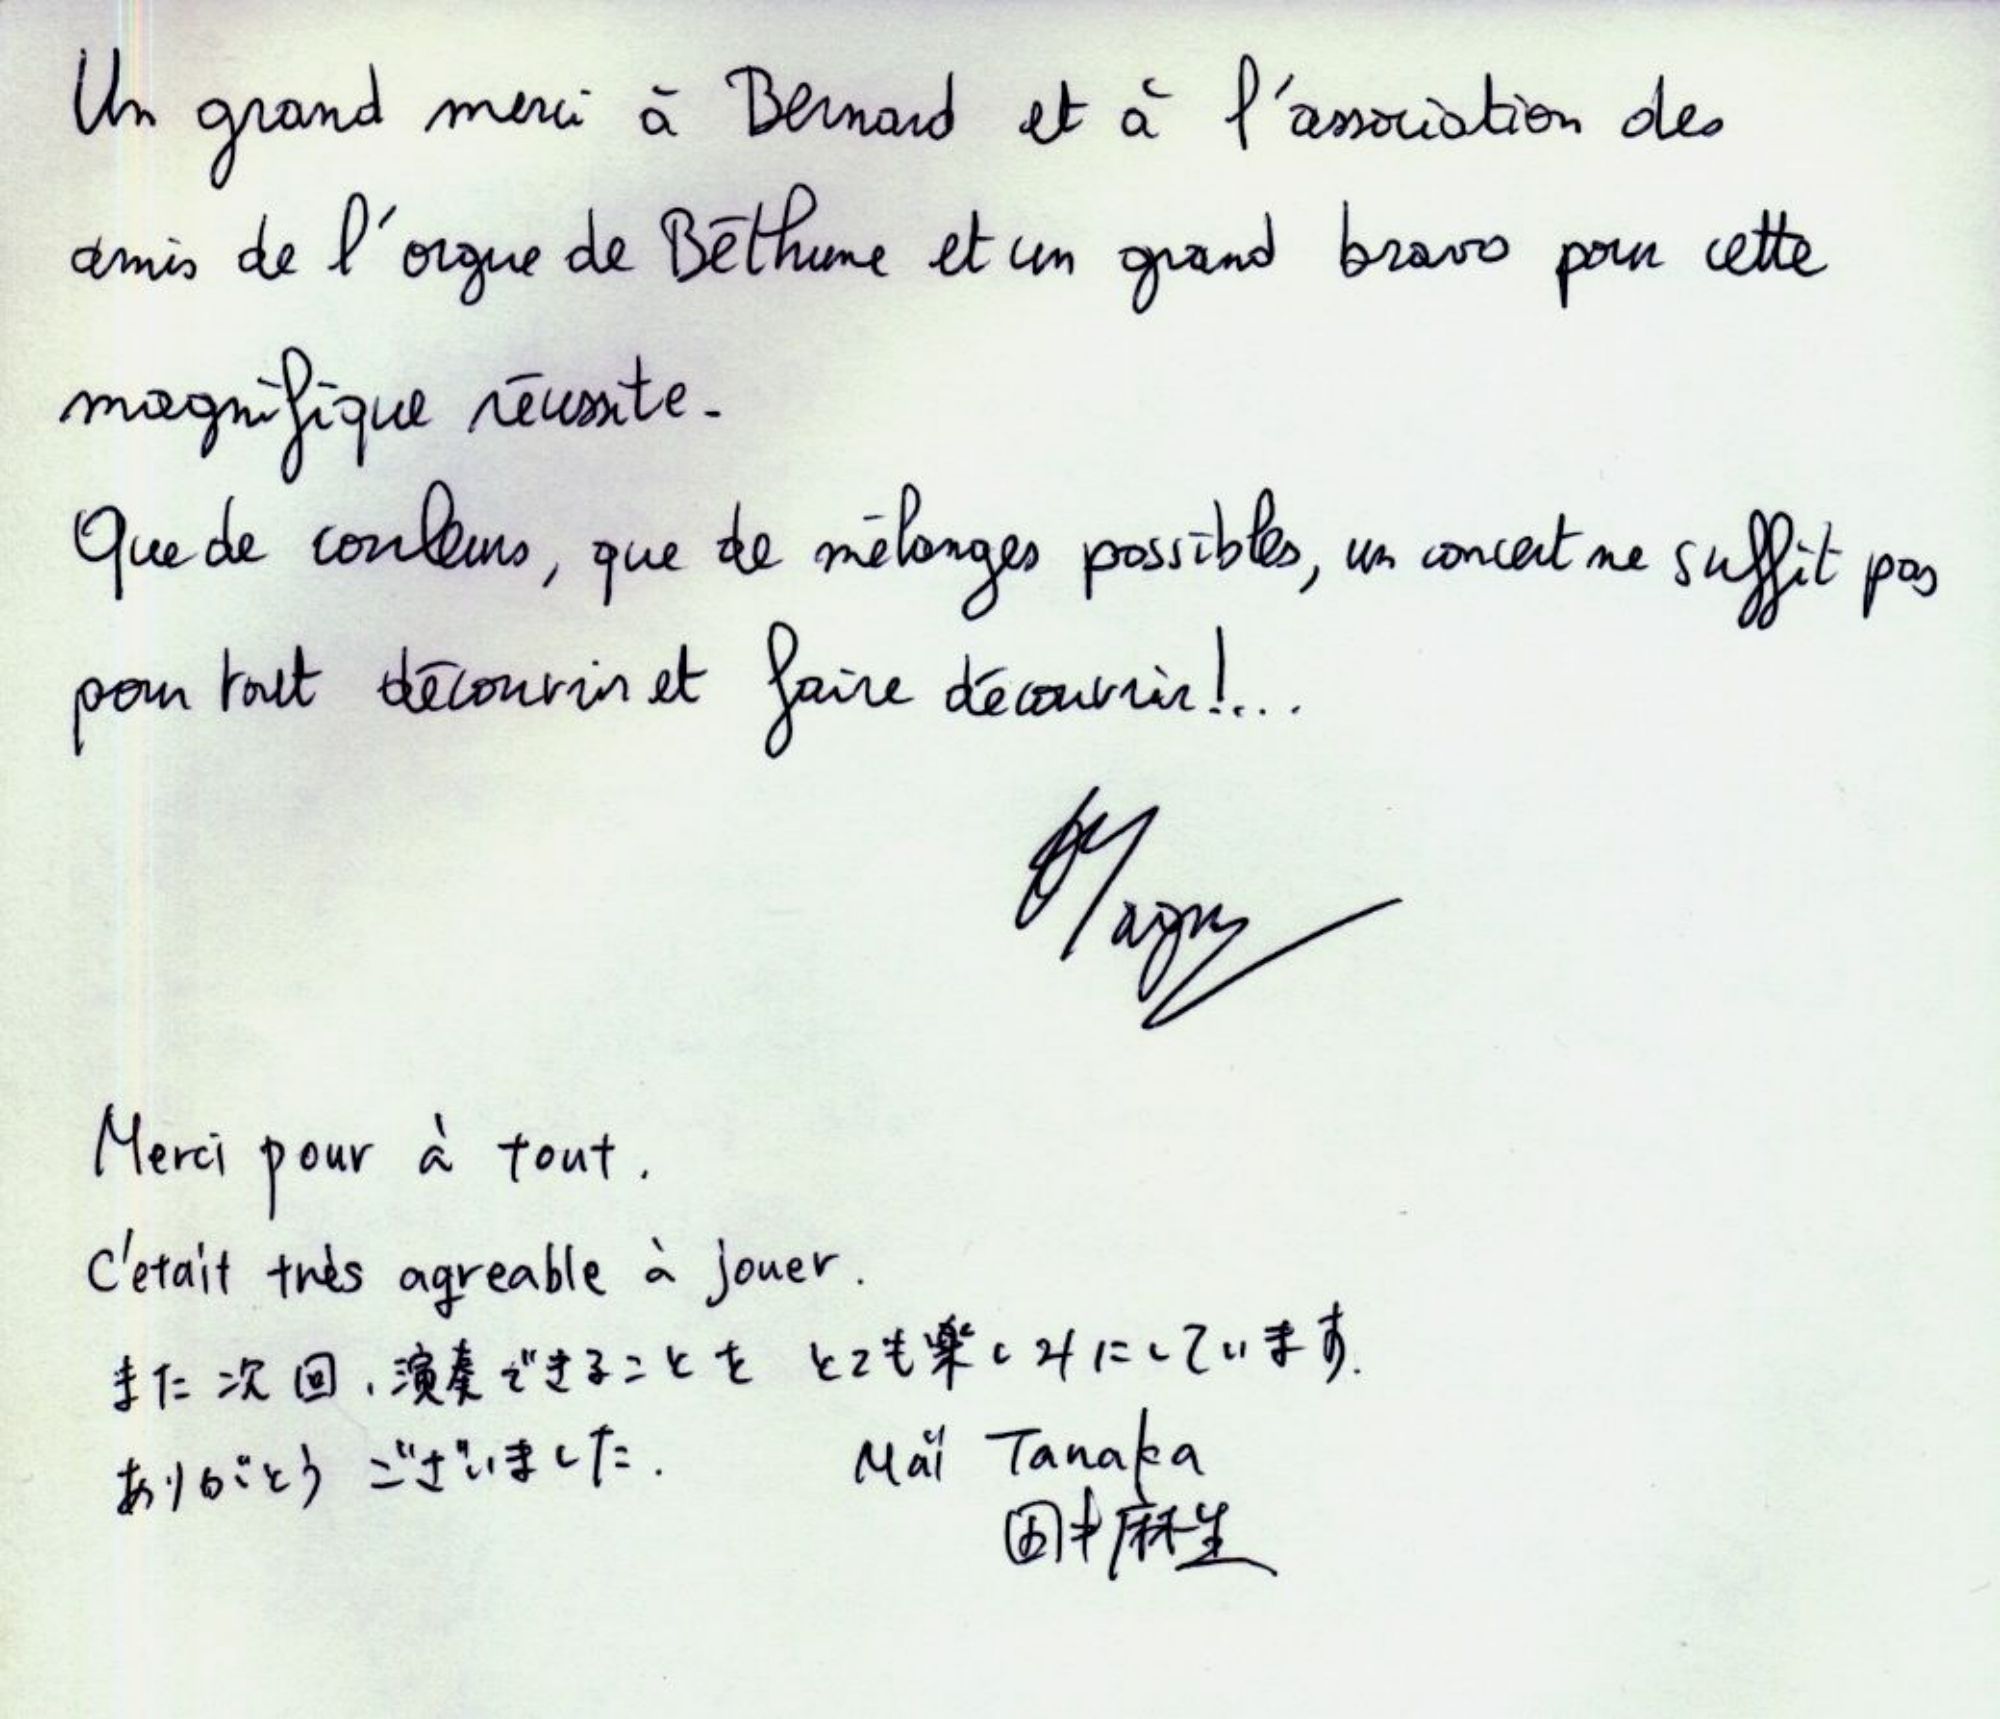 Un grand merci à Bernard et à l'association des
amis de l'orgue de Béthune et un grand bravo pour cette
magnifique réussite.
Que de couleurs, que de mélanges possibles, un concert ne suffit pas
pour tout découvrir et faire découvrir!...
Merci pour à tout.
C'etait très agreable à jouer.
また次回、演奏できることを とても楽しみにしています.
ありがとう ございました.
Maï Tanaka
田中麻生